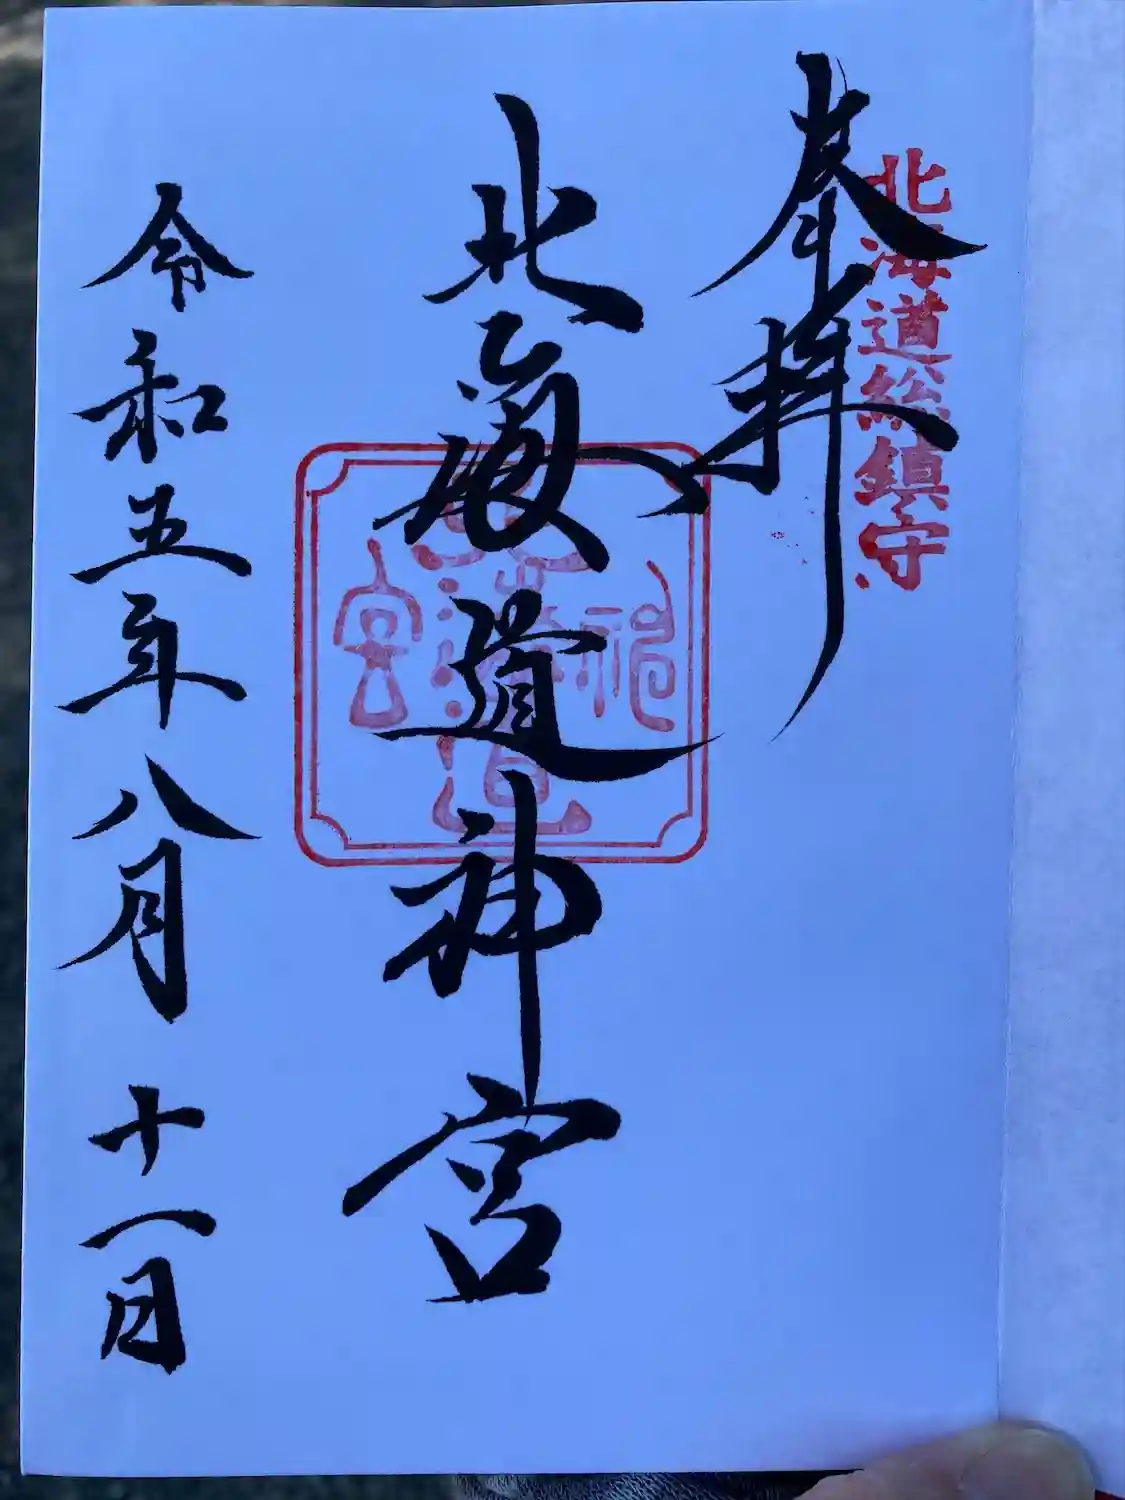 奉拝
北海道総鎮守
北海道神宮
令和五年八月十一日